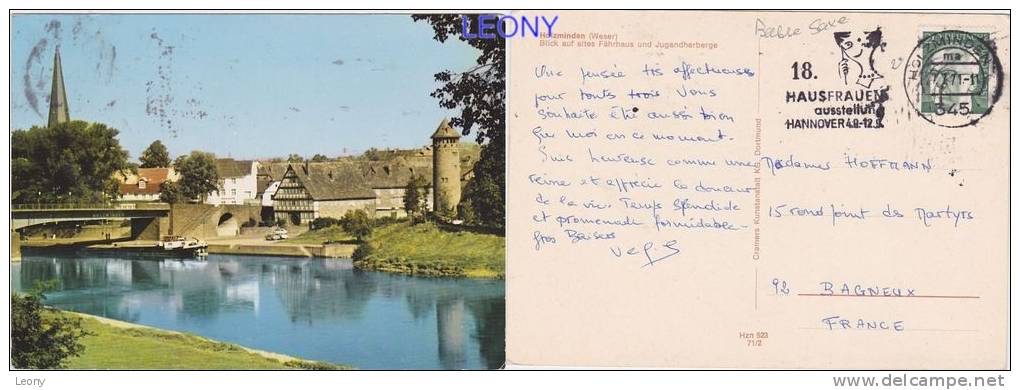 LEONY
Holzminden (Weser)
Blick auf altes Fährhaus und Jugendherberge
Basse Saxe
18.
HAUSFRAUEN
ausstellung
HANNOVER 4.9.-12.9.
345
Une pensée très affectueuse
pour toutes trois. Vous
souhaite été aussi bien
que moi en ce moment.
Suis heureuse comme une
reine et apprécie la douceur
de la vie. Temps splendide
et promenade formidable -
Gros Baisers
Mesdames HOFFMANN
15 rond point des Martyrs
92 BAGNEUX
FRANCE
Cramers Kunstanstalt KG, Dortmund
Hzn 523
71/2
Leony
delcampe.net